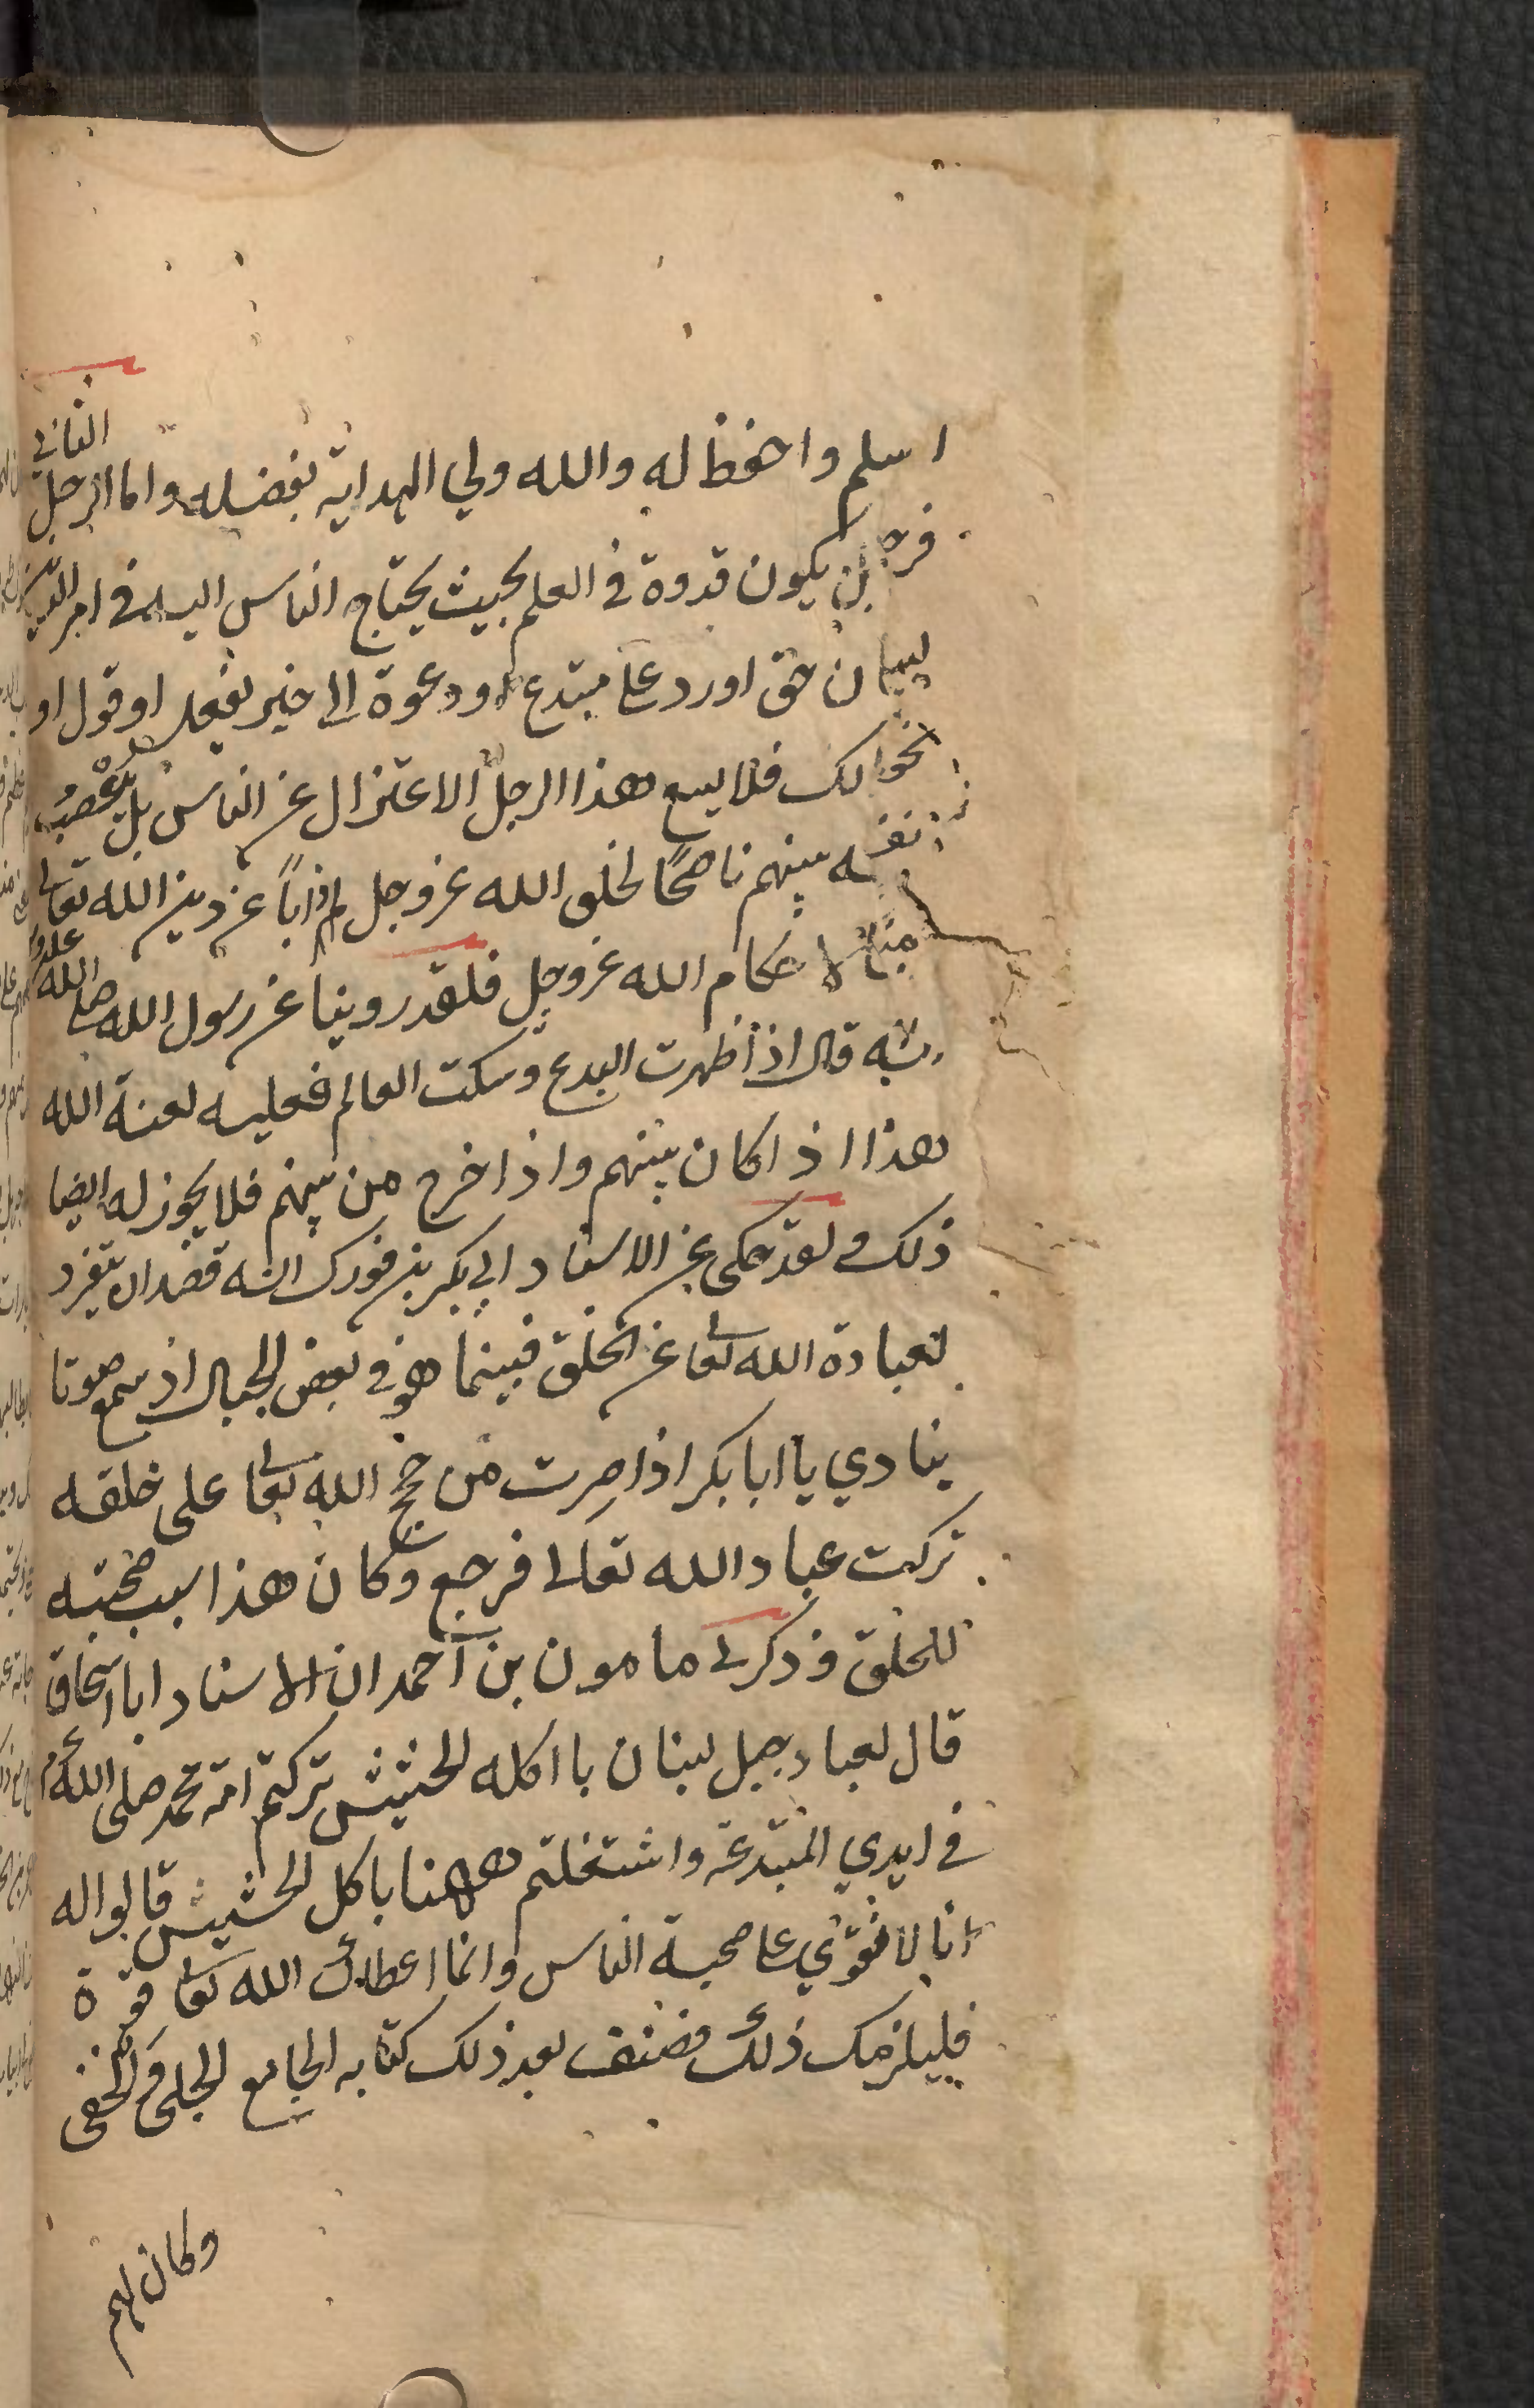 اسلم واحفظ له والله ولي الهداية بفضله واما الرجل الثاني
فرجل يكون قدوة في العلم بحيث يحتاج الناس اليه في امر الدين
لبيان حق اورد على مبتدع او دعوة الى خير بفعل او قول او
نحو ذلك فلا يسع هذا الرجل الاعتزال عن الناس بل ينصب
نفسه بينهم ناصحًا لخلق الله عز وجل ذابًا عن دين الله تعالى
مبينا لاحكام الله عز وجل فلقد روينا عن رسول الله صلى الله عليه و
انه قال اذا ظهرت البدع وسكت العالم فعليه لعنة الله
هذا اذا كان بينهم واذا خرج من بينهم فلا يجوز له ايضا
ذلك ولقد حكى عن الاستاد ابي بكر بن فورك انه قصد ان يتفرد
لعبادة الله تعا عن الخلق فبينما هو في بعض الجبال اذ سمع صوتا
ينادي يا ابا بكر اذا صرت من حجج الله تعا على خلقه
تركت عباد الله تعالى فرجع وكان هذا سبب صحبته
للخلق وذكر لي مامون بن احمد ان الاستاد ابا اسحاق
قال لعباد جبل لبنان يا اكلة الحشيش تركتم امة محمد صلى الله عم
في ايدي المبتدعة واشتغلتم ههنا باكل الحشيش قالوا له
انا لا نقوي على صحبة الناس وانما اعطاك الله تعا قوة
فليلزمك ذلك فصنف بعد ذلك كتابه الجامع للجلي والخفى
وكان لهم